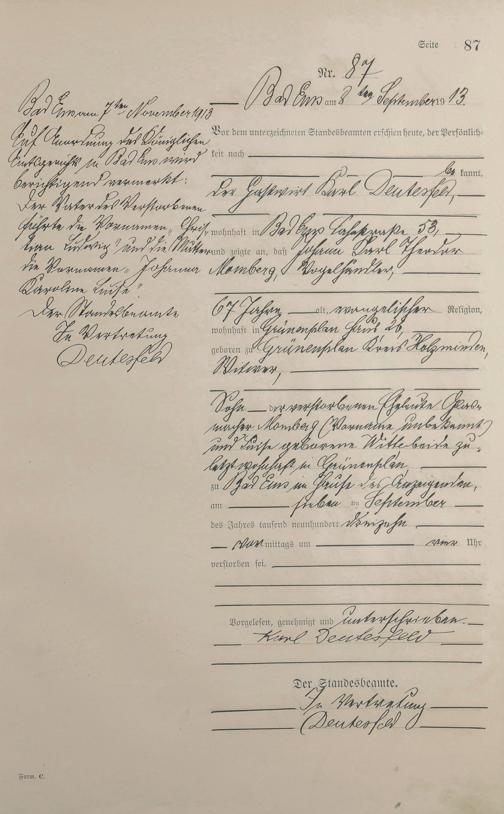 Seite 87
Nr. 87
Bad Ems am 8 ten September 1913.
Vor dem unterzeichneten Standesbeamten erschien heute, der Persönlich-
keit nach
be kannt,
der Gastwirt Karl Deutesfeld,
wohnhaft in Bad Ems Lahnstraße 53,
und zeigte an, daß Johann Karl Theodor
Momberg, Vogelhändler,
67 Jahre alt, evangelischer Religion,
wohnhaft in Grünenplan Haus 26,
geboren zu Grünenplan Kreis Holzminden,
Witwer,
Sohn der verstorbenen Eheleute Glas-
macher Momberg (Vorname unbekannt)
und Luise geborene Wittebeide zu-
letzt wohnhaft in Grünenplan,
zu Bad Ems im Hause des Anzeigenden,
am sieben ten September
des Jahres tausend neunhundert dreizehn
vor mittags um vier Uhr
verstorben sei.
Vorgelesen, genehmigt und unterschrieben.
Karl Deutesfeld
Der Standesbeamte.
In Vertretung
Deutesfeld
Bad Ems am 7 ten November 1913
Auf Anordnung des Königlichen
Amtsgerichts in Bad Ems wird
berichtigend vermerkt:
Der Vater des Verstorbenen
führte die Vornamen „Chris-
tian Ludwig" und die Mutter
die Vornamen „Johanna
Karoline Luise"
Der Standesbeamte
In Vertretung
Deutesfeld
Form. C.